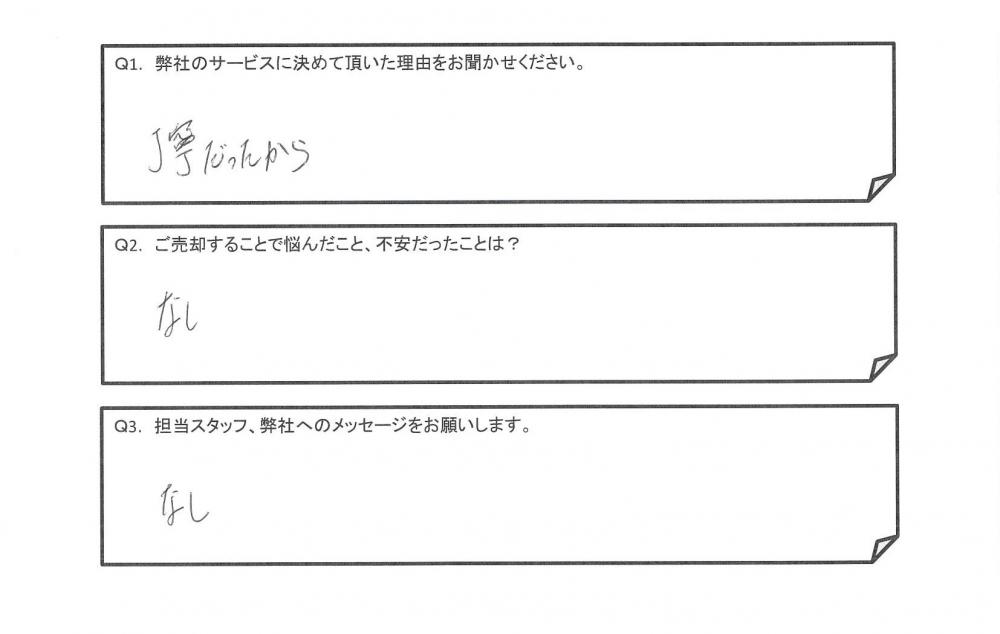 Q1. 弊社のサービスに決めて頂いた理由をお聞かせください。
丁寧だったから
Q2. ご売却することで悩んだこと、不安だったことは？
なし
Q3. 担当スタッフ、弊社へのメッセージをお願いします。
なし